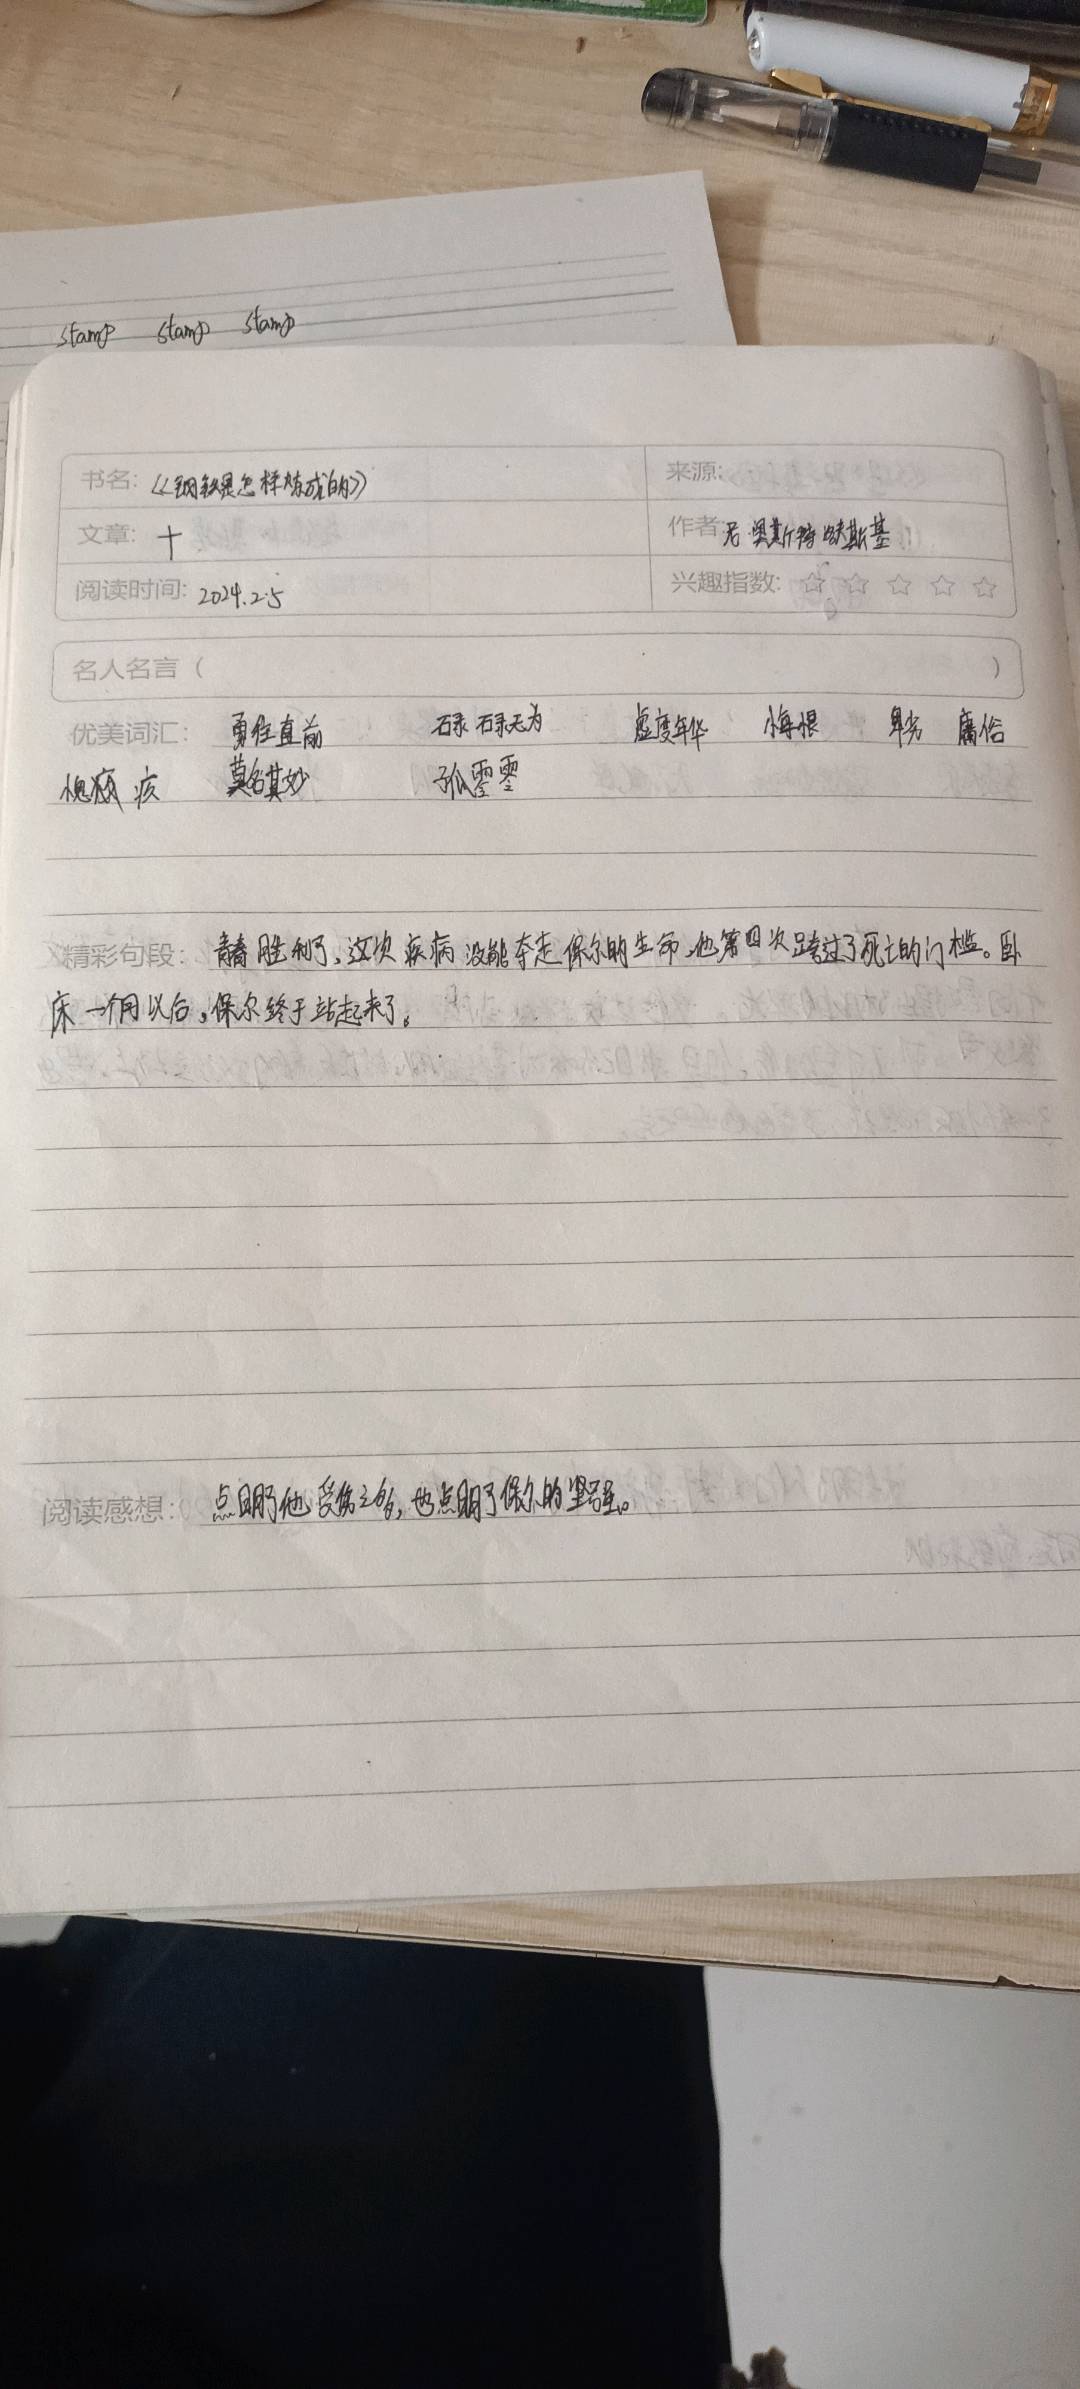 stamp stamp stamp
书名: 《钢铁是怎样炼成的》 来源:
文章: 十 作者: 尼奥斯特洛夫斯基
阅读时间: 2024.2.5 兴趣指数: ☆ ☆ ☆ ☆ ☆
名人名言 ( )
优美词汇: 勇往直前 碌碌无为 虚度年华 悔恨 卑劣 庸俗
疾 莫名其妙 孤零零
精彩句段: 青春胜利了,这次疾病没能夺走保尔的生命,他第四次跨过了死亡的门槛。卧
床一个月以后,保尔终于站起来了。
阅读感想: 点明了他受伤之多,也点明了保尔的坚强。